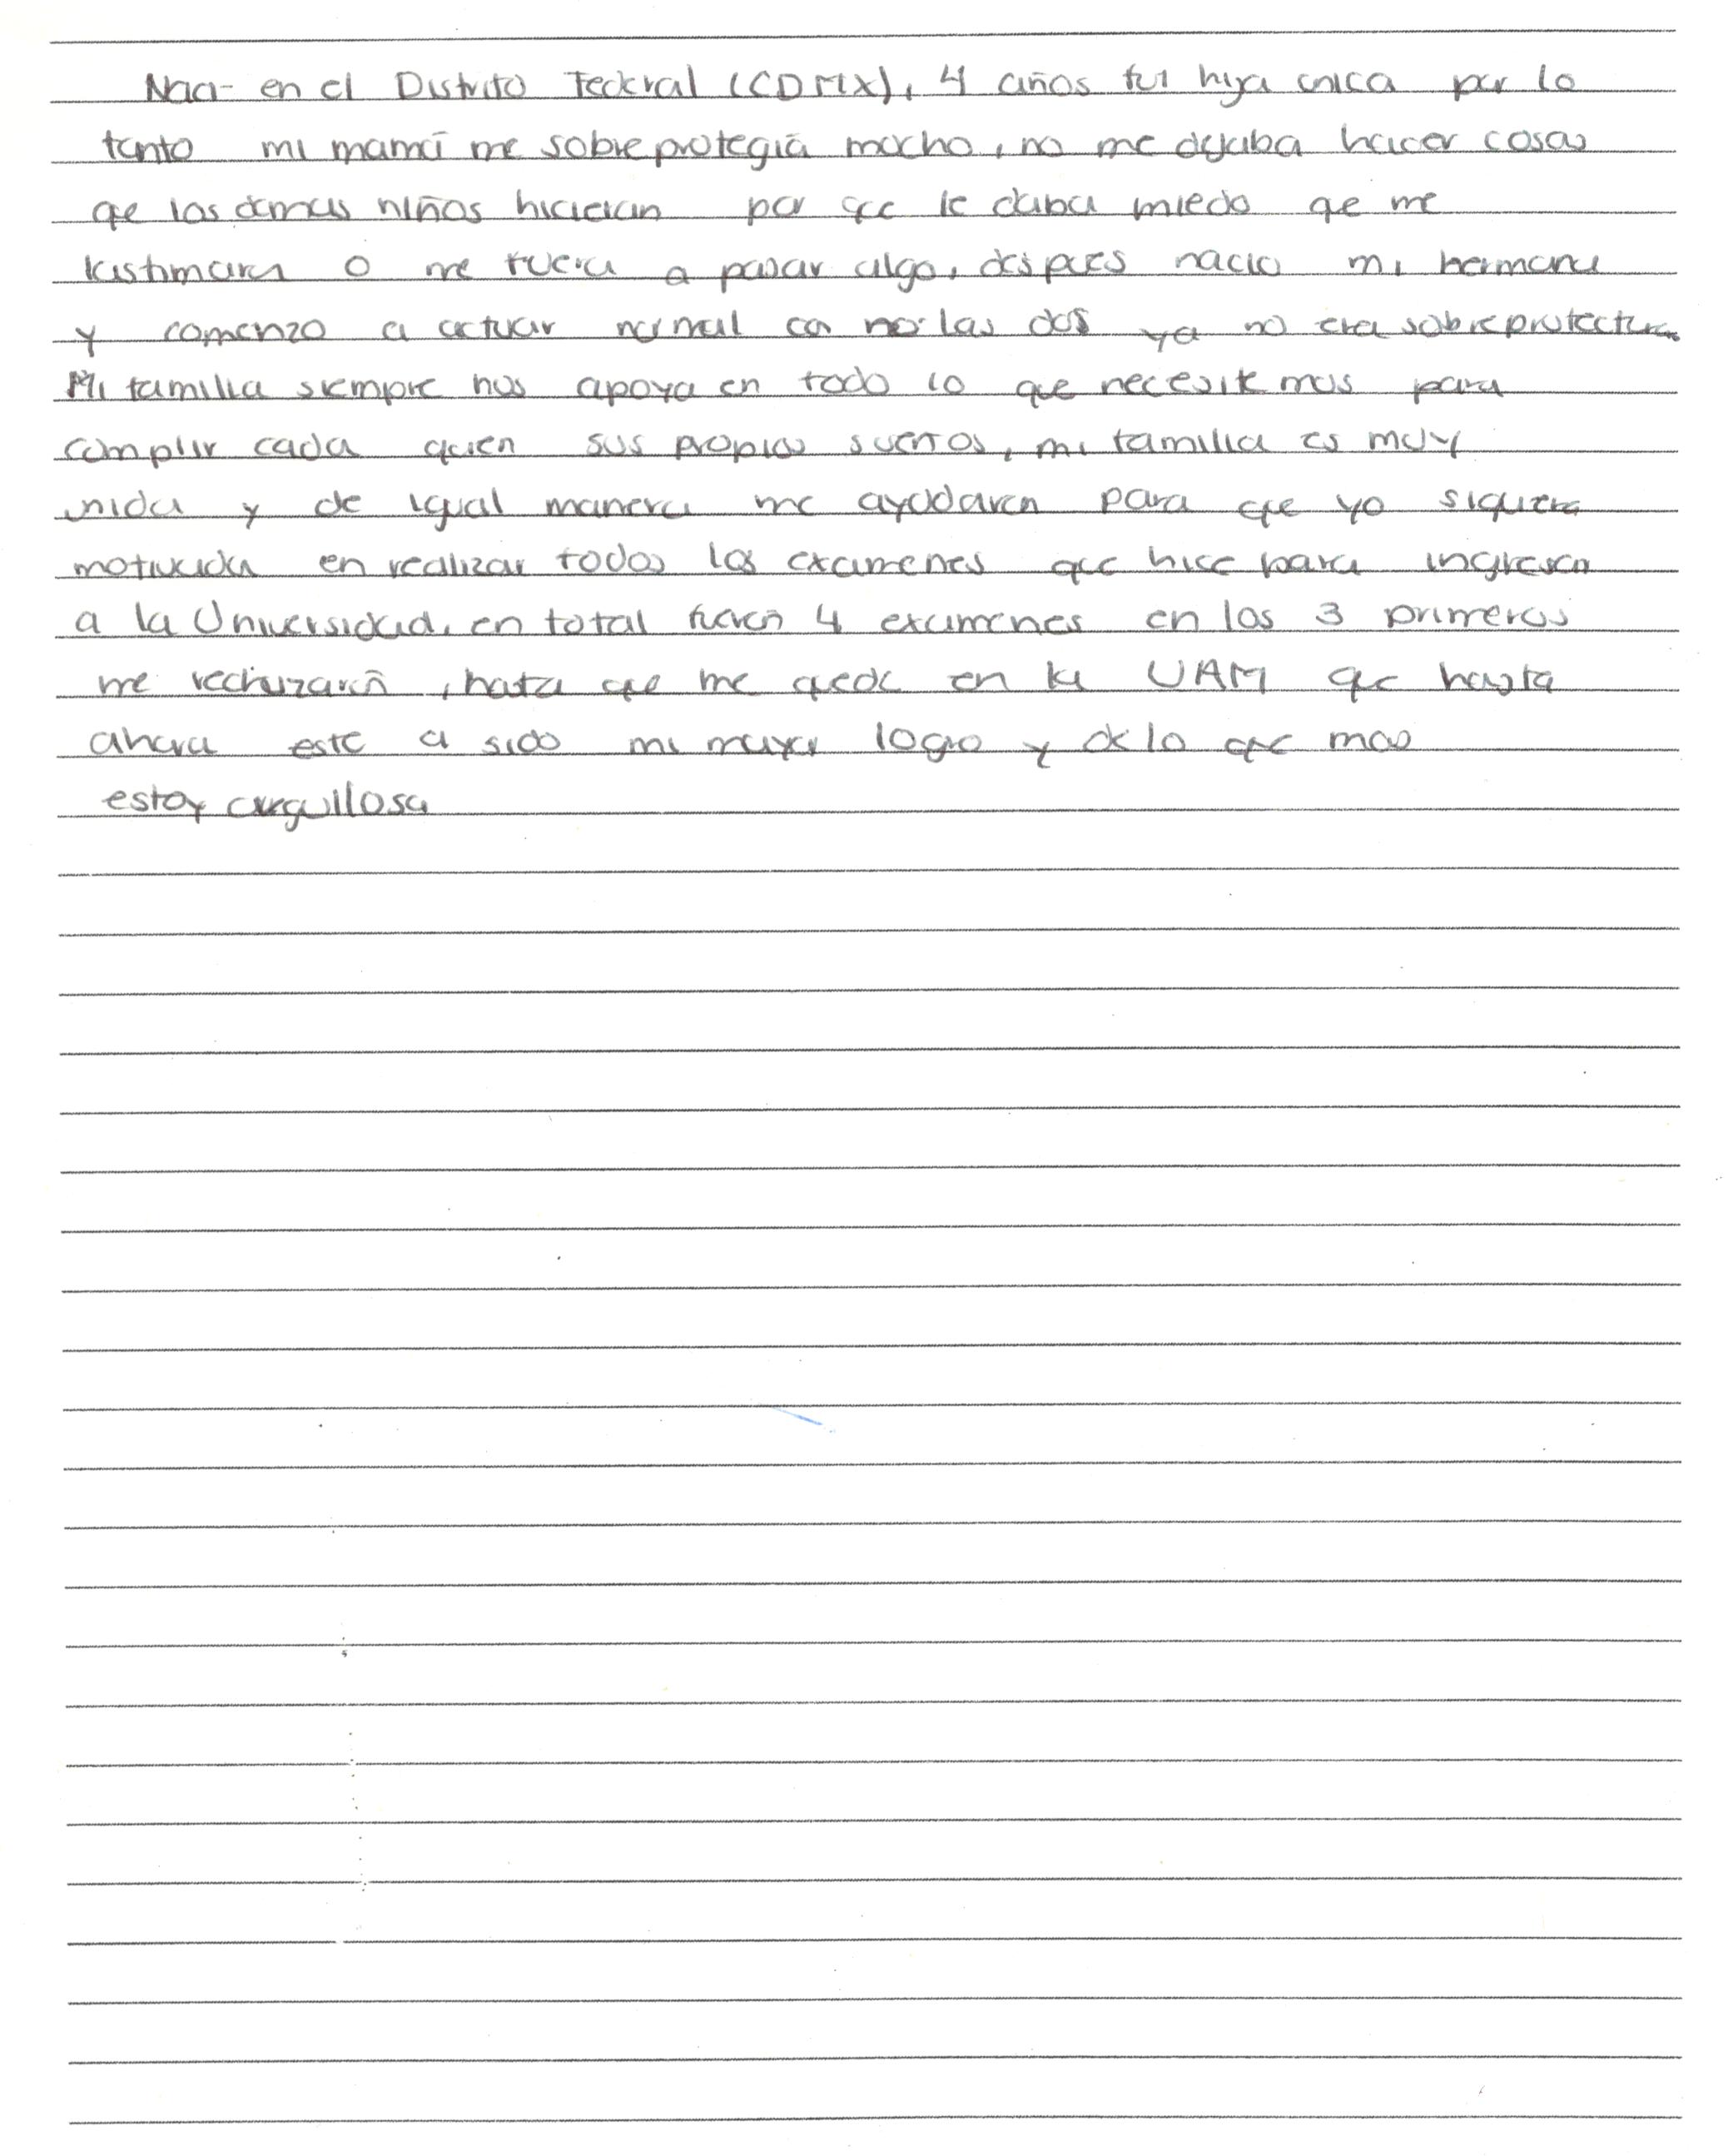 Naci en el Distrito Federal (CDMX), 4 años fui hija unica por lo
tanto mi mamá me sobreprotegiá mucho, no me dejaba hacer cosas
que los demas niños hicieran por que le daba miedo que me
lastimara o me fuera a pasar algo, despues nacio mi hermana
y comenzo a actuar normal con las dos ya no era sobreprotectora
Mi familia siempre nos apoya en todo lo que necesitemos para
complir cada quien sus propios sueños, mi familia es muy
unida y de igual manera me ayudaron para que yo siguiera
motivada en realizar todos los examenes que hice para ingresar
a la Universidad, en total fueron 4 examenes en los 3 primeros
me rechazaron, hata que me quede en la UAM que hasta
ahora este a sido mi mayor logro y de lo que mas
estoy orgullosa